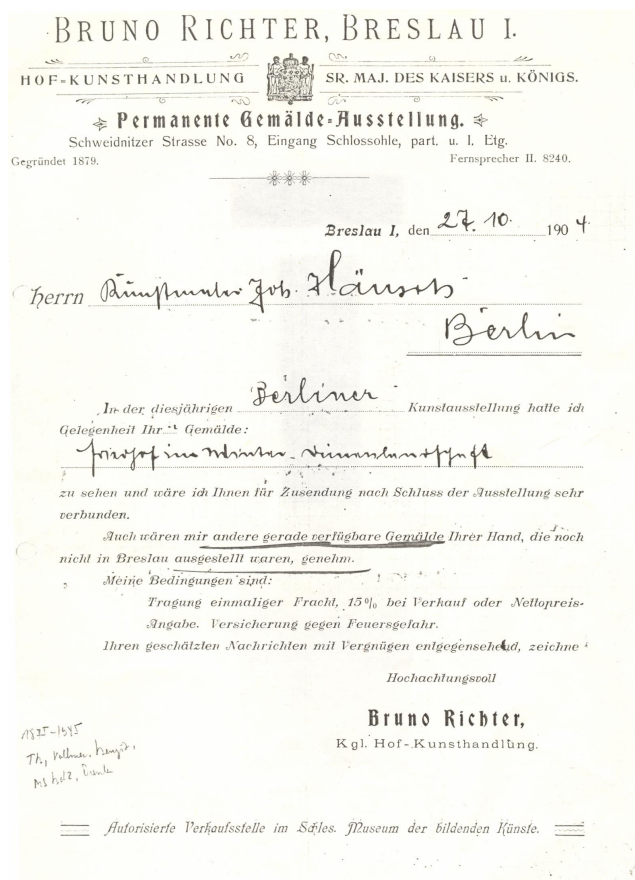 BRUNO RICHTER, BRESLAU I.
HOF=KUNSTHANDLUNG SR. MAJ. DES KAISERS u. KÖNIGS.
Permanente Gemälde=Ausstellung.
Schweidnitzer Strasse No. 8, Eingang Schlossohle, part. u. I. Etg.
Gegründet 1879. Fernsprecher II. 8240.
Breslau I, den 27. 10. 1904
Herrn Kunstmaler Joh. Hänsch
Berlin
In der diesjährigen Berliner Kunstausstellung hatte ich
Gelegenheit Ihr Gemälde:
Friedhof im Winter - Dünenlandschaft
zu sehen und wäre ich Ihnen für Zusendung nach Schluss der Ausstellung sehr
verbunden.
Auch wären mir andere gerade verfügbare Gemälde Ihrer Hand, die noch
nicht in Breslau ausgestellt waren, genehm.
Meine Bedingungen sind:
Tragung einmaliger Fracht, 15% bei Verkauf oder Nettopreis-
Angabe. Versicherung gegen Feuersgefahr.
Ihren geschätzten Nachrichten mit Vergnügen entgegensehend, zeichne
Hochachtungsvoll
Bruno Richter,
Kgl. Hof-Kunsthandlung.
1875-1945
Th,
Autorisierte Verkaufsstelle im Schles. Museum der bildenden Künste.